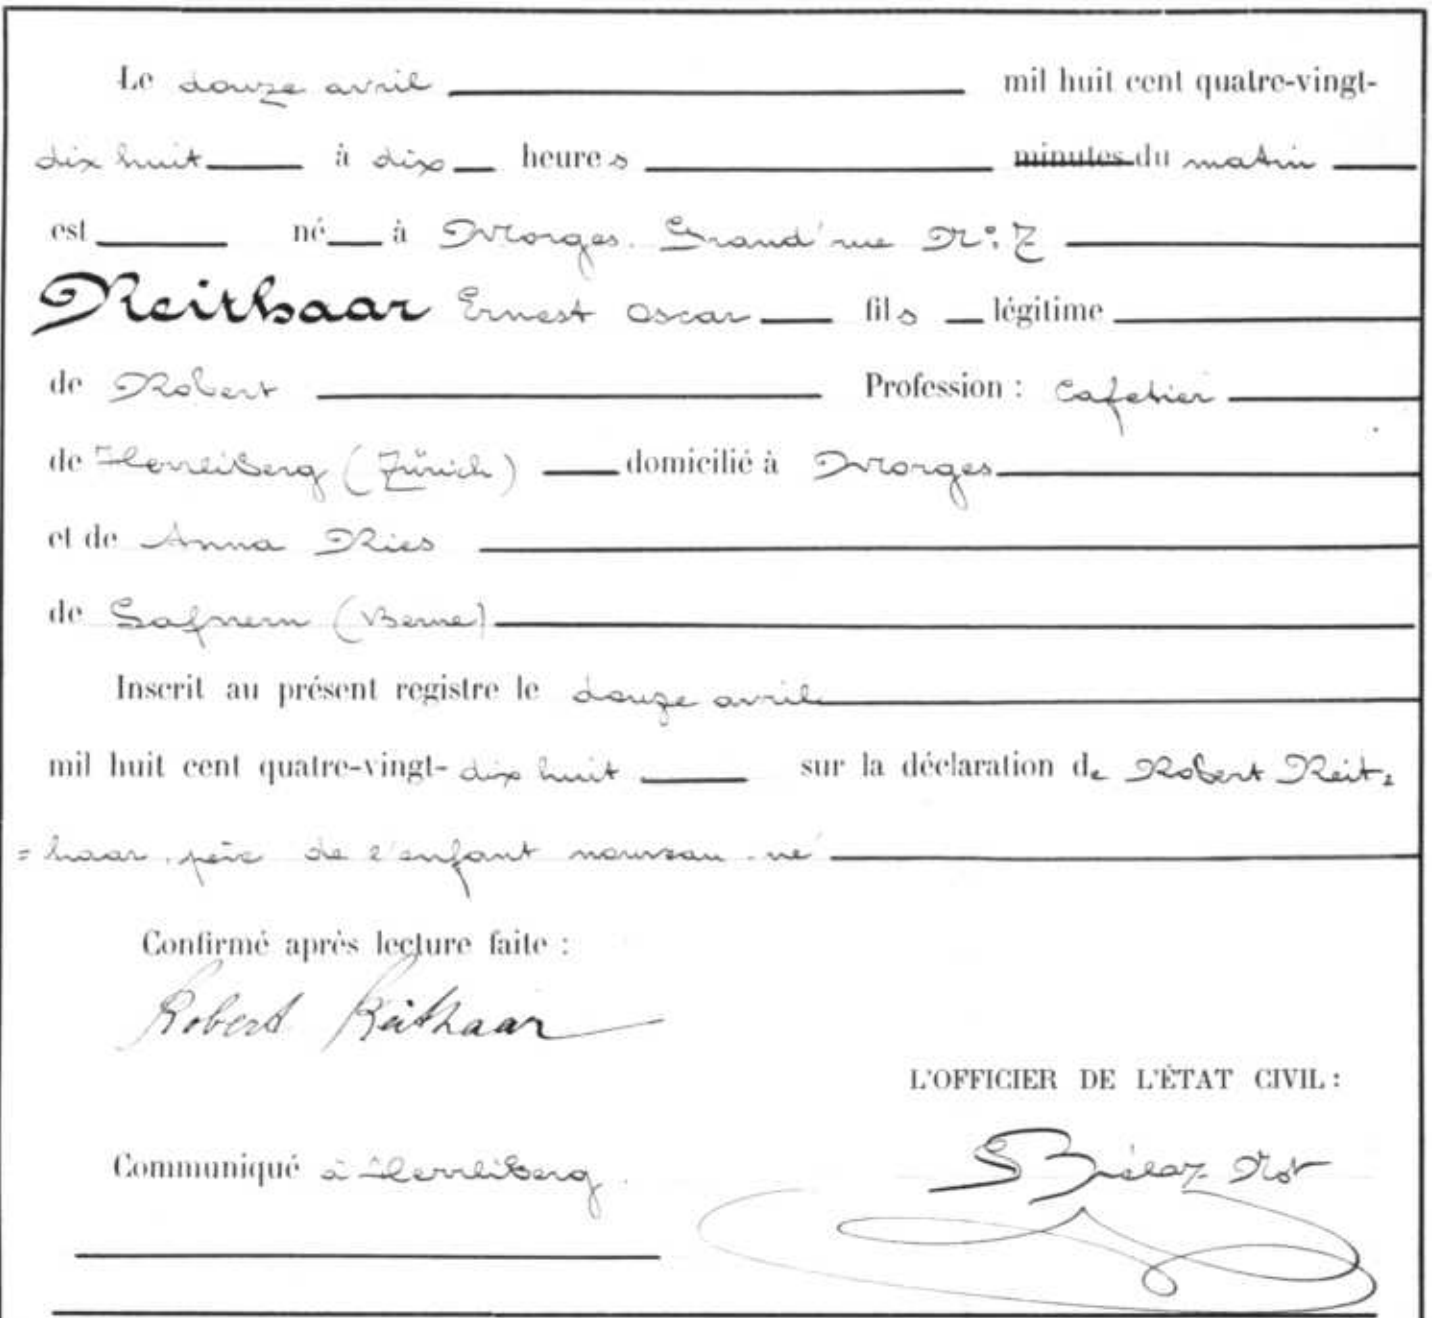 Le douze avril mil huit cent quatre-vingt-
dix huit à dix heures minutes du matin
est né à Morges. Grand'rue No. 7
Reithaar Ernest Oscar fils légitime
de Robert Profession : Cafetier
de Herrliberg (Zürich) domicilié à Morges
et de Anna Ries
de Safnern (Berne)
Inscrit au présent registre le douze avril
mil huit cent quatre-vingt- dix huit sur la déclaration de Robert Reit=
=haar, père de l'enfant nouveau-né
Confirmé après lecture faite :
Robert Reithaar
L'OFFICIER DE L'ÉTAT CIVIL :
Communiqué à Herrliberg.